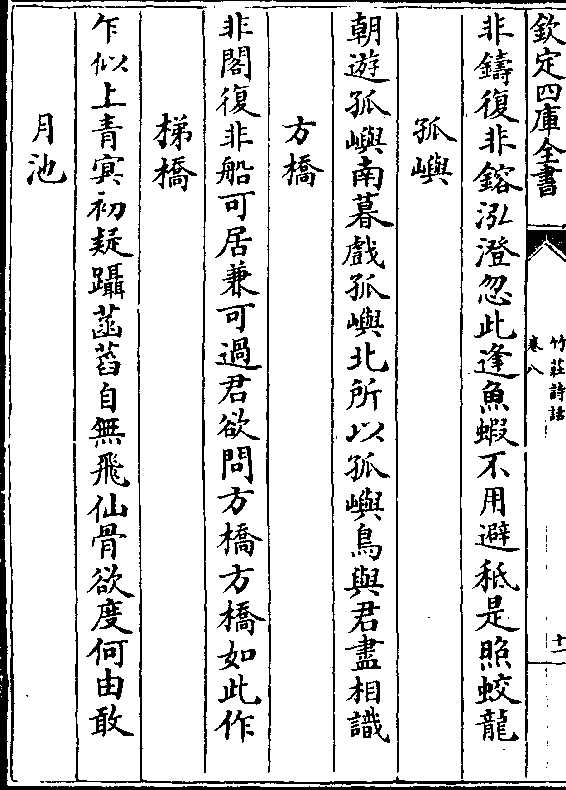 欽定四庫全書
竹莊詩話
卷八
十一
非鑄復非鎔泓澄忽此逢魚蝦不用避秪是照蛟龍
孤嶼
朝遊孤嶼南暮戲孤嶼北所以孤嶼鳥與君盡相識
方橋
非閣復非船可居兼可過君欲問方橋方橋如此作
梯橋
乍似上青冥初疑躡菡萏自無飛仙骨欲度何由敢
月池